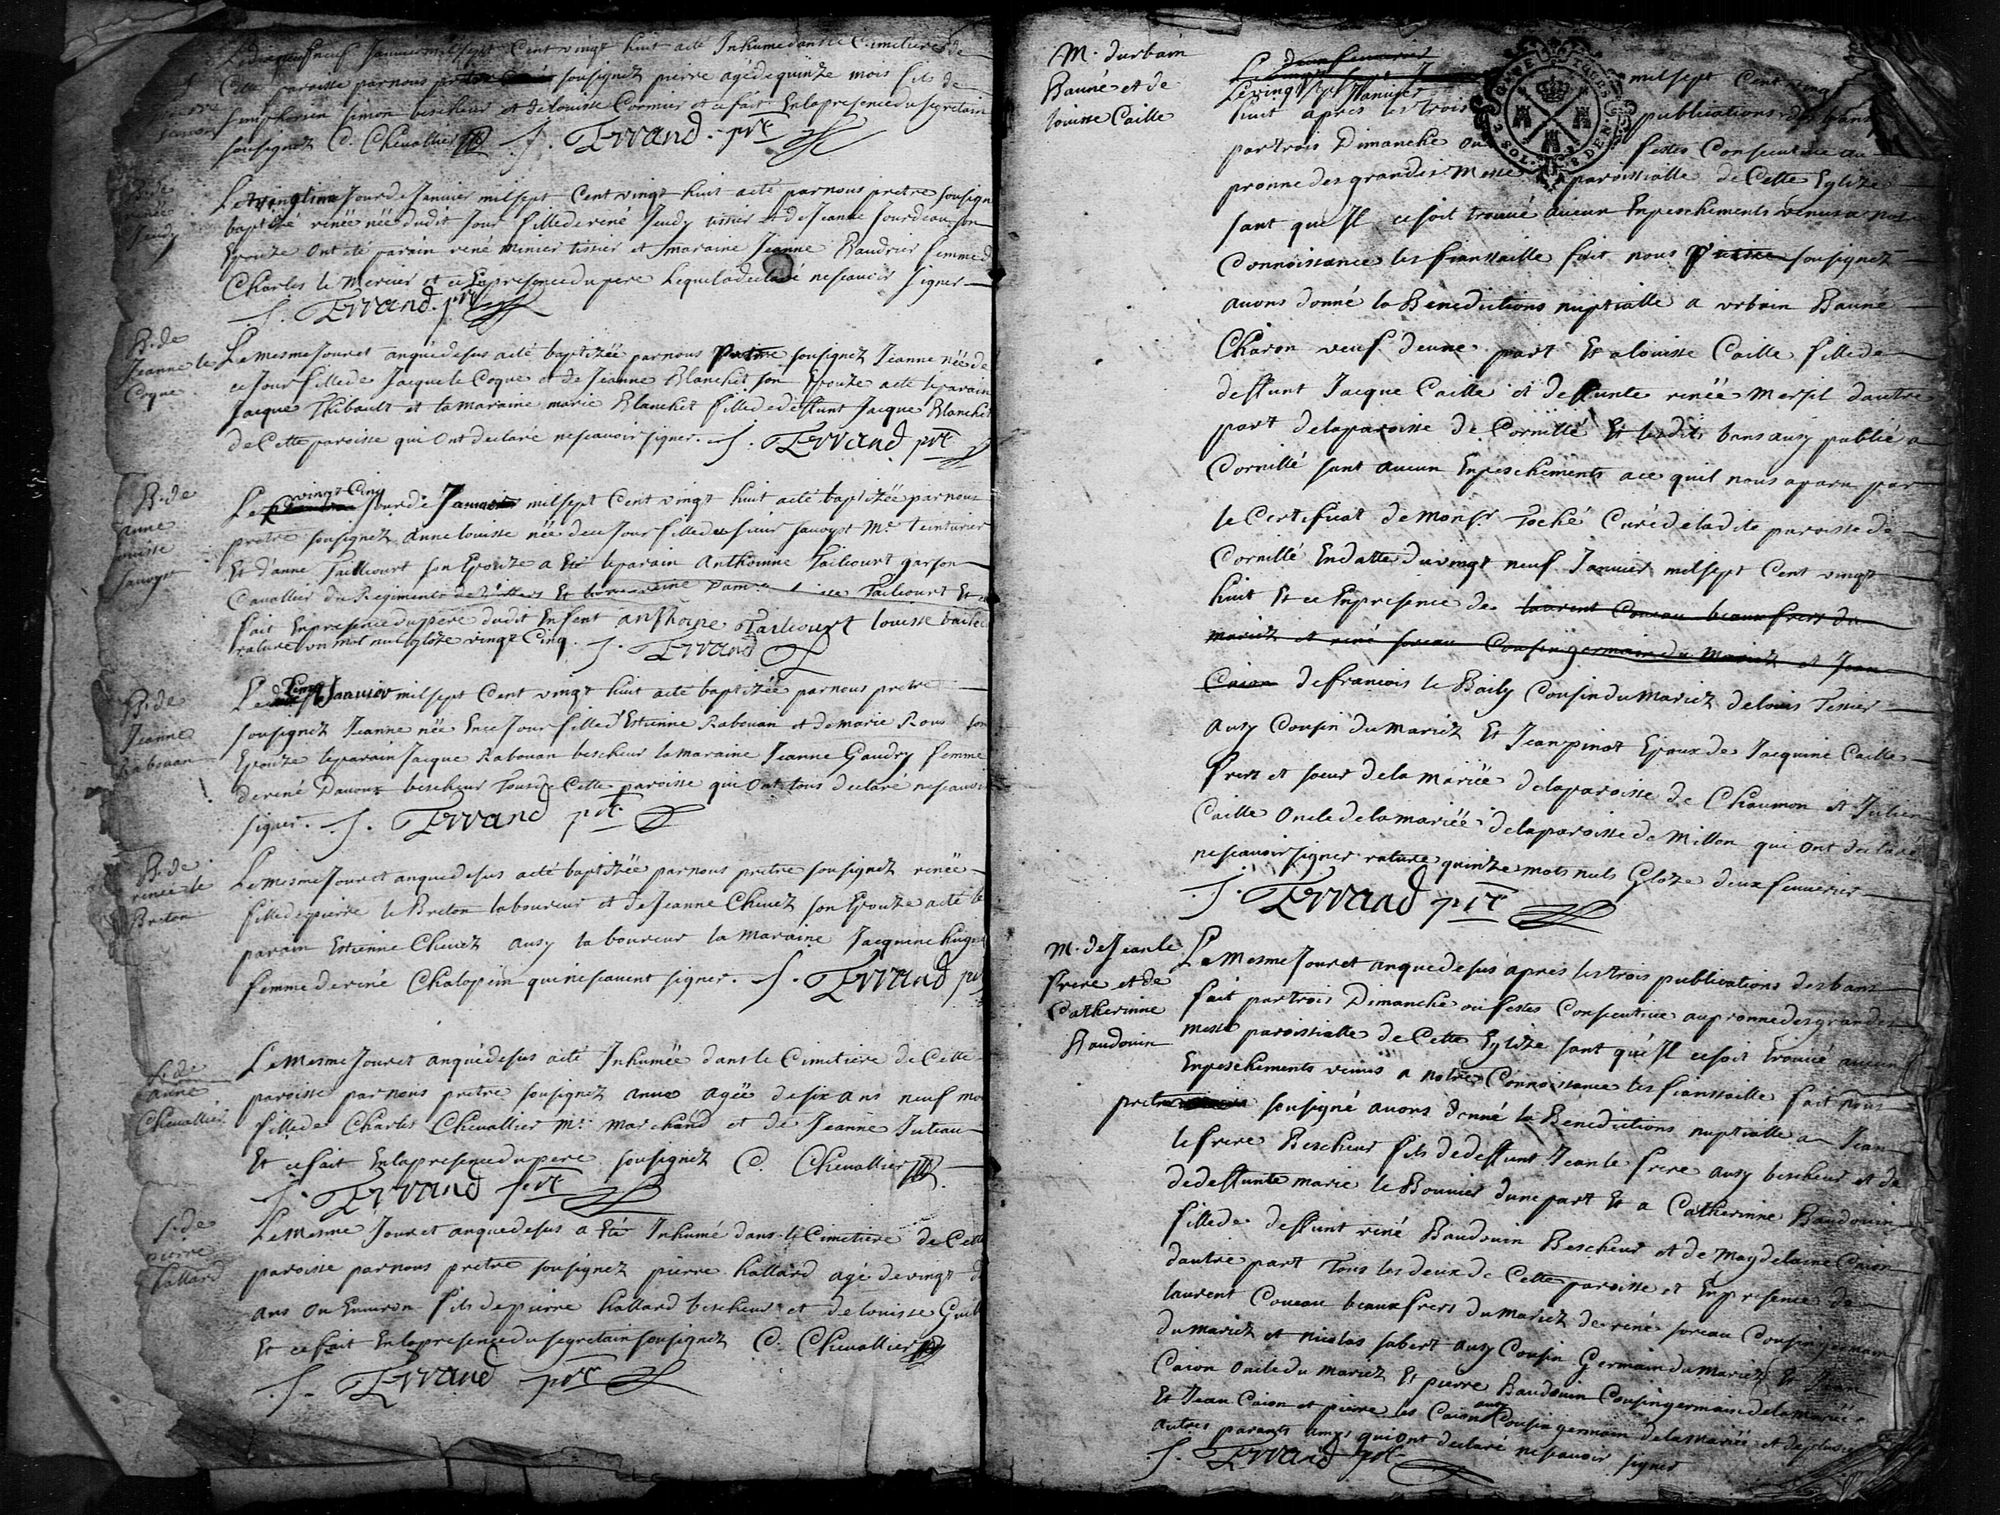 Le dixneuf Janvier mil sept Cent vingt huit acté Inhumé dans le Cimetiere de
Cette paroisse par nous soussignez pierre agé de quinze mois fils de
Simphorien simon bescheur et de louisse Cormier et ce fait En la presence du segretain
sousignez C. Chevallier J. Ervand. prt
B. de
renée
Jeudy
Le vingtieme Jour de Janvier mil sept Cent vingt huit acté par nous pretre sousigné
baptizé renée née dudit Jour fille de rené Jeudy tissier et de Jeanne Jourdeau son
Epouze Ont été parain rené minier tissier et maraine Jeanne Baudrier femme de
Charles le Mercier et ce En presence du pere Lequel a declaré ne scavoir signer
J. Ervand. prt
B. de
Jeanne le
Coque
Le mesme Jour et an que desus acté baptizée par nous pretre sousignez Jeanne née de
ce Jour fille de Jacque le Coque et de Jeanne Blanchet son Epouze acté le parain
Jacque Thibault et la maraine marie Blanchet fille de deffunt Jacque Blanchet
de Cette paroisse qui Ont declaré ne scavoir signer. J. Ervand prt
B. de
anne
louisse
Sauoyst
Le vingt Cinq Jour de Janvier mil sept Cent vingt huit acté baptizée par nous
pretre sousignez anne louisse née de ce Jour fille de sieur Sauoyst Me teinturier
Et d'anne Tailcourt son Epouze a Eté le parain Anthoinne Tailcourt garson
Cavallier du Regiments de Et la maraine Tailcourt Et ce
fait En presence du pere dudit Enfent anthoine Tailcourt louisse
rature un mot nul gloze vingt Cinq. J. Ervand
B. de
Jeanne
Rabouan
Le Janvier mil sept Cent vingt huit acté baptizée par nous pretre
sousignez Jeanne née En ce Jour fille d'Estienne Rabouan et de marie Rous son
Epouze le parain Jacque Rabouan bescheur la maraine Jeanne Gaudry femme
de rené Davoux bescheur Tous de Cette paroisse qui Ont tous declaré ne scavoir
signer. J. Ervand prt
B. de
renée le
Breton
Le mesme Jour et an que desus acté baptizée par nous pretre sousignez renée
fille de pierre le Breton laboureur et de Jeanne Chevez son Epouze acté le
parain Estienne Chevez ausy laboureur la maraine Jacquine
femme de rené Chalopin qui ne scavent signer. J. Ervand prt
S. de
anne
Chevallier
Le mesme Jour et an que desus acté Inhumée dans le Cimetiere de Cette
paroisse par nous pretre sousignez anne agée de six ans neuf mois
fille de Charles Chevallier Me marchand et de Jeanne Juteau
Et ce fait En la presence du pere sousignez C. Chevallier
J. Ervand prt
S. de
pierre
hallard
Le mesme Jour et an que desus a Eté Inhumé dans le Cimetiere de Cette
paroisse par nous pretre sousignez pierre hallard agé de vingt
ans Ou Environ fils de pierre hallard bescheur et de louisse
Et ce fait En la presence du segretain sousignez C. Chevallier
J. Ervand prt
M. durbain
Bauné et de
louisse Caille
deux fevrier
mil sept Cent vingt
huit apres les trois publications des bans
par trois Dimanche ou festes Consecutive au
pronne des grandes Messe paroissialle de Cette Eglize
sant que Jl ce soit trouué aucun Enpeschements venus a notre
Connoissance les fianssaille fait nous pretre sousignez
auons donné la Benedictions nuptialle a vrbain Bauné
Charon veuf d'une part Et a louisse Caille fille de
deffunt Jacque Caille et deffunte renée Mersil dautre
part de la paroisse de Cornillé Et les dits bans ausy publié a
Cornillé sant aucun Enpeschements a ce quil nous aparu par
le Certificat de Monsr Toché Curé de la dite paroisse de
Cornillé En datte du vingt neuf Janvier mil sept Cent vingt
huit Et ce En presence de laurent Coueau beaux frere du
mariez et rené soreau Cousin germain du mariez et Jean
Caion de francois le Baily Cousin du Mariez de louis Tessier
ausy Cousin du Mariez Et Jean pinot Epoux de Jacquine Caille
frere et soeur de la Mariée de la paroisse de Chaumon et Julien
Caille Oncle de la mariée de la paroisse de Millon qui Ont declaré
ne scavoir signer rature quinze mots nuls Gloze deux fevrier
J. Ervand prt
M. de Jean le
frere et de
Catherinne
Baudouin
Le Mesme Jour et an que desus apres les trois publications des bans
fait par trois Dimanche ou festes Consecutive au pronne des grandes
messe paroissialle de Cette Eglize sant que Jl ce soit trouué aucun
Enpeschements venus a notre Connoissance les fianssaille fait nous
pretre sousigné auons donné la Benedictions nuptialle a Jean
le frere Bescheur fils de deffunt Jean le frere ausy bescheur et de
de deffunte marie le Bouvier dune part Et a Catherinne Baudouin
fille de deffunt rené Baudouin Bescheur et de Magdelaine Caion
dautre part Tous les deux de Cette paroisse et En presence de
laurent Coueau beaux frere du mariez de rené soreau Cousin germain
du mariez et nicolas Jobert ausy Cousin Germain du Mariez Et Jean
Caion Oncle du mariez Et pierre Baudouin Cousin germain de la mariée
Et Jean Caion et pierre les Caion ausy Cousin germain de la mariée et de plusieurs
autres parants amys qui ont declaré ne scavoir signer
J. Ervand prt